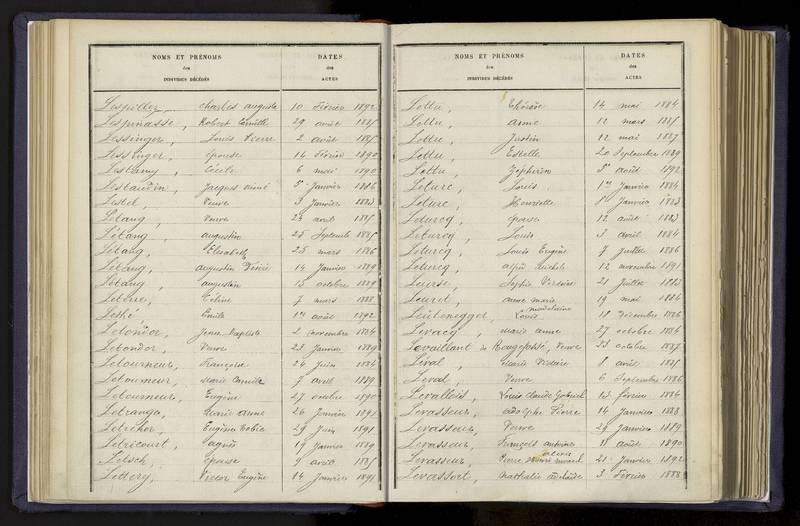 NOMS ET PRÉNOMS
des
INDIVIDUS DÉCÉDÉS
DATES
des
ACTES
Lespiller, charles auguste 10 Février 1892
Lespinasse, Robert Camille 29 avril 1885
Lessinger, Louis Pierre 2 août 1885
Lessinger, épouse 14 Février 1890
Lestamy, Cécile 6 mai 1890
Lestaudin, Jacques aimé 5 Janvier 1886
Lestel, Veuve 3 Janvier 1883
Létang, Veuve 24 avril 1885
Létang, augustin 25 Septemb 1885
Létang, Elisabeth 25 mars 1886
Létang, augustin Désiré 14 Janvier 1889
Létang, augustin 15 octobre 1889
Céline 7 mars 1888
Lethé, Emile 1er août 1892
Letondor, Jean Baptiste 2 novembre 1884
Letondor, Veuve 23 Janvier 1889
Letourneur, Françoise 24 Juin 1884
Letourneur, Marie Camille 7 avril 1889
Letourneur, Eugène 27 octobre 1890
Letrange, Marie anne 26 Janvier 1892
Eugène 29 Juin 1891
Letricourt, agnès 19 Janvier 1889
Letsch, épouse 9 avril 1885
Lettery, Victor Eugène 14 Janvier 1891
NOMS ET PRÉNOMS
des
INDIVIDUS DÉCÉDÉS
DATES
des
ACTES
Lettu, Thérèse 14 mai 1884
Lettu, anne 12 mars 1885
Lettu, Justin 12 mai 1887
Lettu, Estelle 20 Septembre 1889
Lettu, Zéphirin 5 août 1892
Leturc, Louis 1er Janvier 1884
Leturc, Henriette 8 Janvier 1883
Leturcq, épouse 12 août 1883
Leturcq, Louis 3 avril 1884
Leturcq, Louis Eugène 7 Juillet 1886
Leturcq, alfred Michel 12 novembre 1891
Leurse, Sophie Victoire 21 Juillet 1883
anne marie 19 mai 1884
Leutenegger, Louise madeleine 18 Décembre 1886
Levacq, marie anne 27 octobre 1884
Levaillant de Bougefossé, Veuve 23 octobre 1885
Léval, Marie Victoire 8 avril 1885
Leval, Veuve 6 Septembre 1886
Levallois, Louis claude Gabriel 13 février 1884
Levasseur, adolphe Pierre 14 Janvier 1888
Levasseur, Veuve 29 Janvier 1889
Levasseur, François antoine 11 août 1890
Levasseur, Pierre marcel 21 Janvier 1892
Levassort, nathalie adelaïde 3 Février 1888